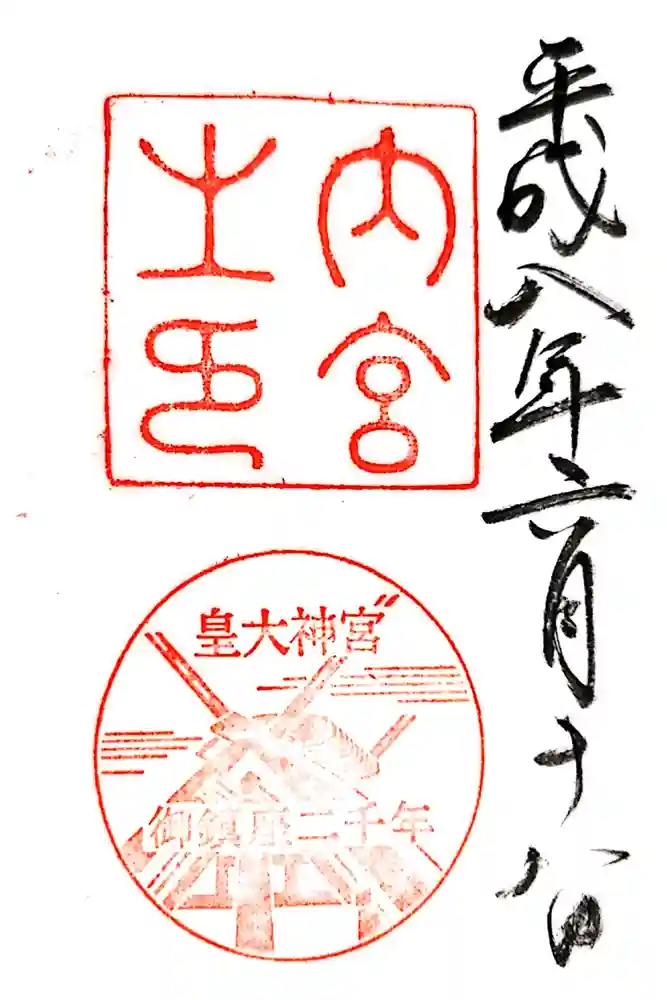 平成八年六月十八日
内宮
之印
皇大神宮
御鎮座二千年